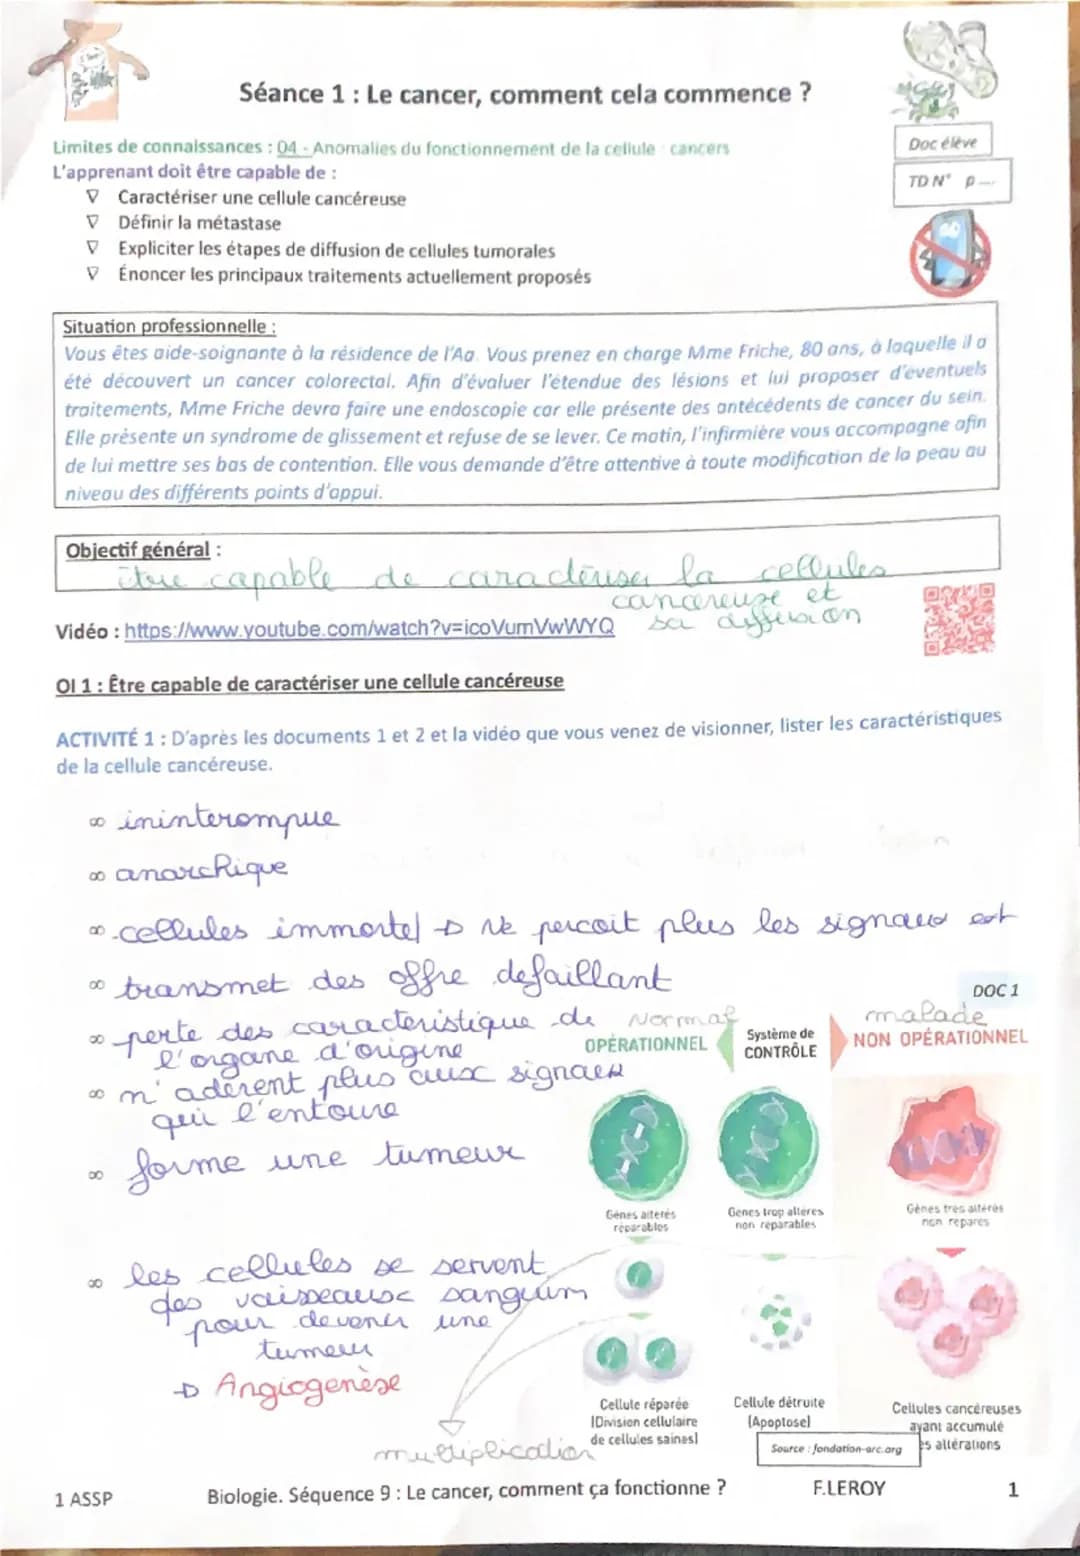 Séance 1 : Le cancer, comment cela commence ?
Doc élève
TD N° p
Limites de connaissances : 04 - Anomalies du fonctionnement de la cellule : cancers
L'apprenant doit être capable de :
Caractériser une cellule cancéreuse
Définir la métastase
Expliciter les étapes de diffusion de cellules tumorales
Énoncer les principaux traitements actuellement proposés
Situation professionnelle :
Vous êtes aide-soignante à la résidence de l'Aa. Vous prenez en charge Mme Friche, 80 ans, à laquelle il a
été découvert un cancer colorectal. Afin d'évaluer l'étendue des lésions et lui proposer d'éventuels
traitements, Mme Friche devra faire une endoscopie car elle présente des antécédents de cancer du sein.
Elle présente un syndrome de glissement et refuse de se lever. Ce matin, l'infirmière vous accompagne afin
de lui mettre ses bas de contention. Elle vous demande d'être attentive à toute modification de la peau au
niveau des différents points d'appui.
Objectif général :
être capable de caractériser la cellules
cancereuse et
sa diffusion
Vidéo : https://www.youtube.com/watch?v=icoVumVwWYQ
OI 1 : Être capable de caractériser une cellule cancéreuse
ACTIVITÉ 1 : D'après les documents 1 et 2 et la vidéo que vous venez de visionner, lister les caractéristiques
de la cellule cancéreuse.
∞ ininterompue
∞ anarchique
∞ cellules immortel → Ne percoit plus les signaux
∞ transmet des offre defaillant
∞ perte des caracteristique de
l'organe d'origine
∞ n'adèrent plus aux signaux
qui l'entoure
∞ forme une tumeur
∞ les cellules se servent
des vaisseaux sanguim
pour devenir une
tumeur
→ Angiogenèse
multiplication
DOC 1
Normal
malade
OPÉRATIONNEL
Système de
CONTRÔLE
NON OPÉRATIONNEL
Gènes altérés
réparables
Gènes trop altérés
non réparables
Gènes très altérés
non réparés
Cellule réparée
(Division cellulaire
de cellules saines)
Cellule détruite
(Apoptose)
Cellules cancéreuses
ayant accumulé
es altérations
Source : fondation-arc.org
1 ASSP
Biologie. Séquence 9 : Le cancer, comment ça fonctionne ?
F.LEROY
1